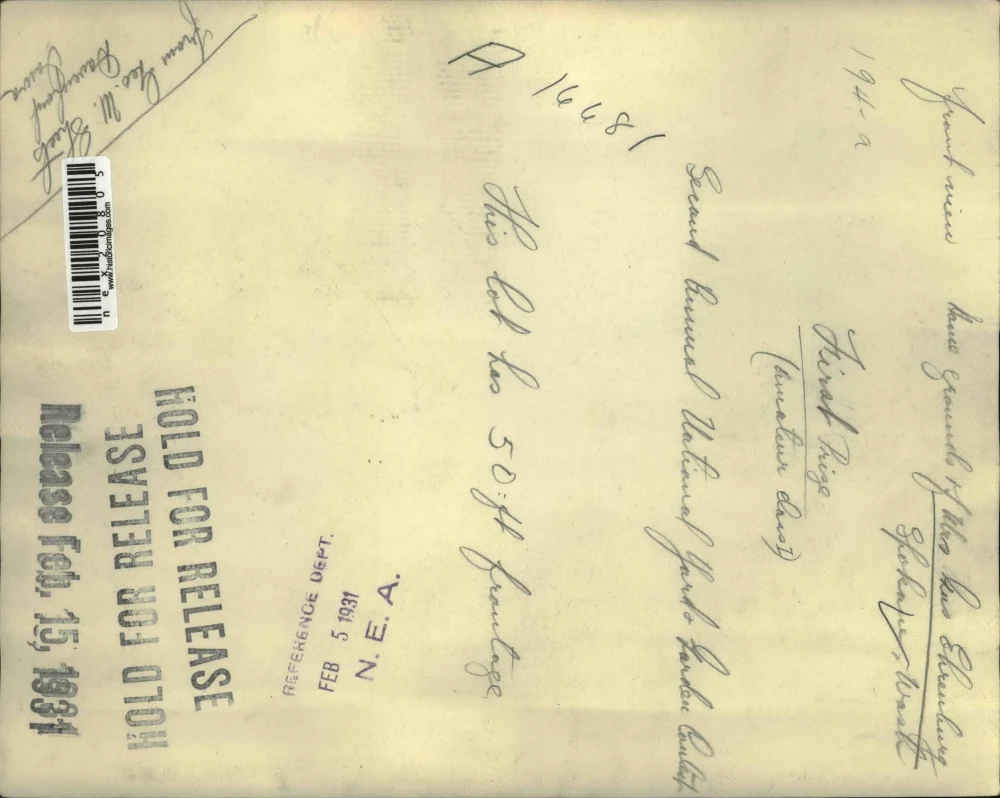 194-a
front view Home grounds of Mrs Chas Ehrenburg
Spokane, Wash
First Prize
(amateur class)
Second Annual National Yards Garden Contest
A 16681
This lot has 50:ft frontage
REFERENCE DEPT.
FEB 5 1931
N. E. A.
HOLD FOR RELEASE
HOLD FOR RELEASE
Release Feb. 15, 1931
From Geo. W.
Davenport
Iowa
www.historicimages.com
nex20805